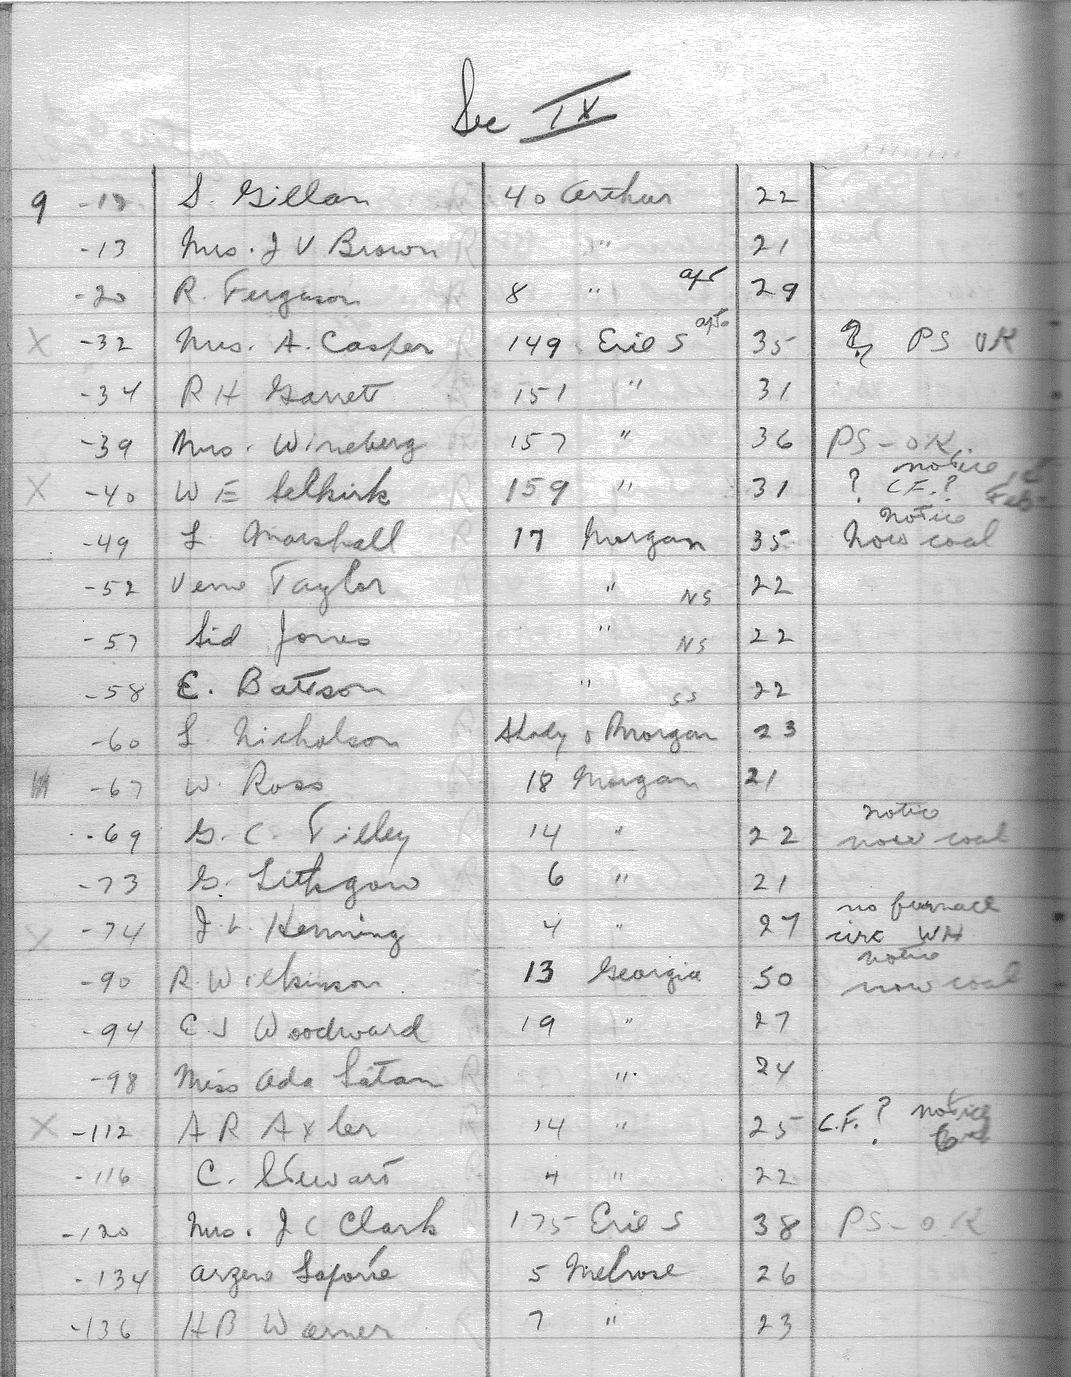 Sec IX
9 -12 S. Gillan 40 Arthur 22
-13 Mrs. J V Brown " 21
-20 R. Ferguson 8 " apt 29
X -32 Mrs. A. Casper 149 Erie S apts 35 ? PS OK
-34 R H Garrett 151 " 31
-39 Mrs. Wineberg 157 " 36 PS-OK.
X -40 W E Selkirk 159 " 31 ? C.F.? notice Feb
-49 L Marshall 17 Morgan 35 notice Now coal
-52 Verne Taylor " NS 22
-57 Sid Jones " NS 22
-58 E. Battson " SS 22
-60 L Nicholson & Morgan 23
-67 W. Ross 18 Morgan 21
-69 G. C. Tilley 14 " 22 notice now coal
-73 G. Lithgow 6 " 21
X -74 J L Henning 4 " 27 no furnace circ WH
-90 R. Wilkinson 13 Georgia 50 notice now coal
-94 E J Woodward 19 " 27
-98 Miss Ada " 24
X -112 A R Axler 14 " 25 C.F.? notice
-116 C. Stewart 4 " 22
-120 Mrs. J C Clark 175 Erie S 38 PS-OK
-134 Laporte 5 Melrose 26
-136 H B Warner 7 " 23